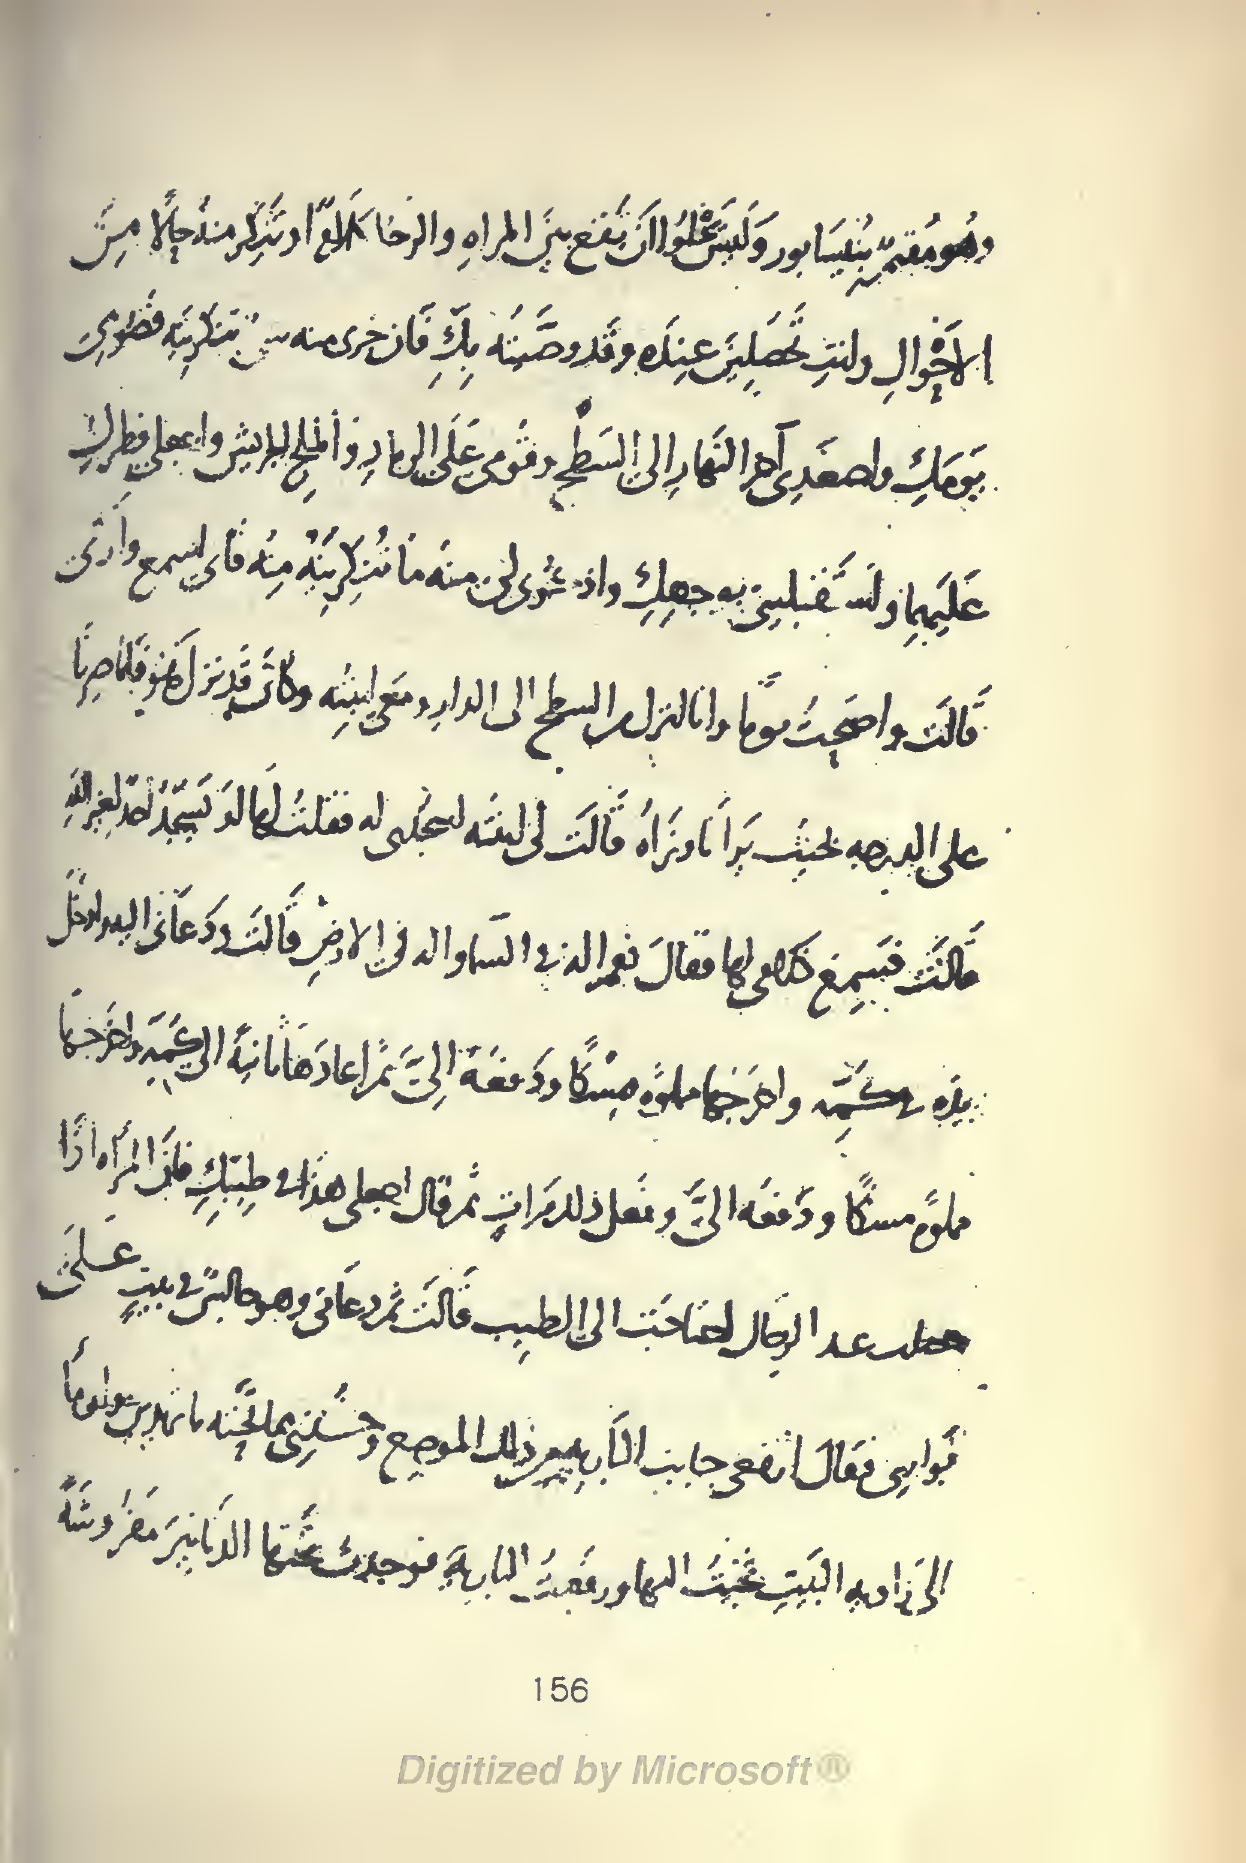 وهو مقيم بنيسابور وليس يخلوا ان يقع بين المراه والرجل كلام او تنكر منه حالا من
الاحوال وانت تحصلين عنده وقد وصيته بك فان جرى منه شي تنكرينه فصومي
يومك واصعدي آخر النهار الى السطح وقومي على الرماد والملح الجريش واجعلي فطرك
عليهما واستقبليني بوجهك واذكري لي منه ما تنكرينه منه فاني اسمع وارى
قالت واصبحت يوما وانا انزل من السطح الى الدار ومعي ابنته وكان قد نزل هو فلما صرنا
على الدرجه بحيث يرانا ونراه قالت لي ابنته اسجدي له فقلت لها او يسجد احد لغير الله
قالت فسمع كلامي لها فقال نعم اله في السما واله في الارض قالت ودعاني اليه وادخل
يده في كمه واخرجها مملوه مسكا ودفعه الي ثم اعادها ثانية الى كمه واخرجها
مملوه مسكا ودفعه الي وفعل ذلك مرات ثم قال اجعلي هذا في طيبك فان المرأه اذا
حصلت عند الرجال احتاجت الى الطيب قالت ثم دعاني وهو جالس في بيت على
بواري فقال ارفعي جانب الباريه من ذلك الموضع وخذي مما تحته ما تريدين واومأ
الى زاويه البيت فجئت اليها ورفعت الباريه فوجدت تحتها الدنانير مفروشة
156
Digitized by Microsoft®